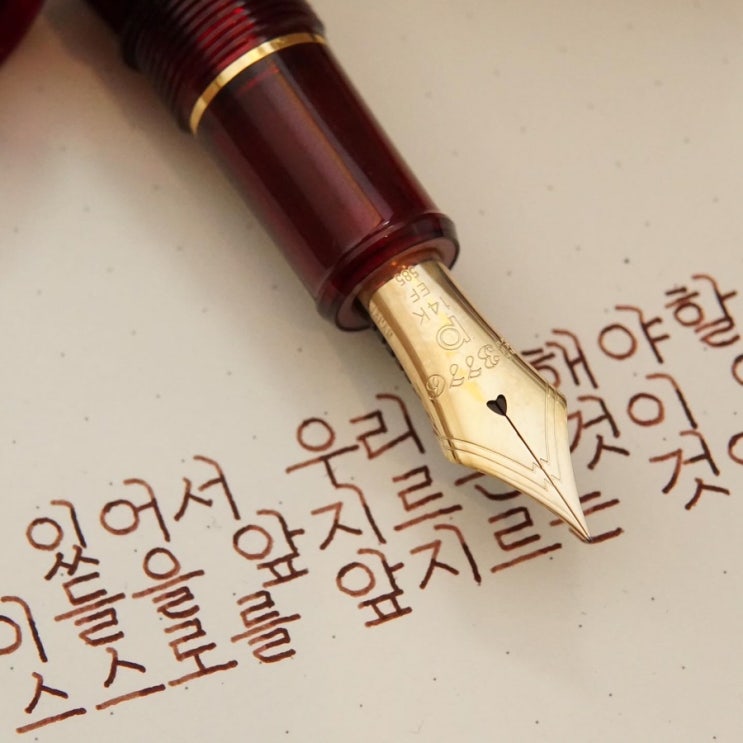 있어서 우리 해야 할
이들을 앞지르는 것이
스스로를 앞지르는 것
#3776
14K
EF
585